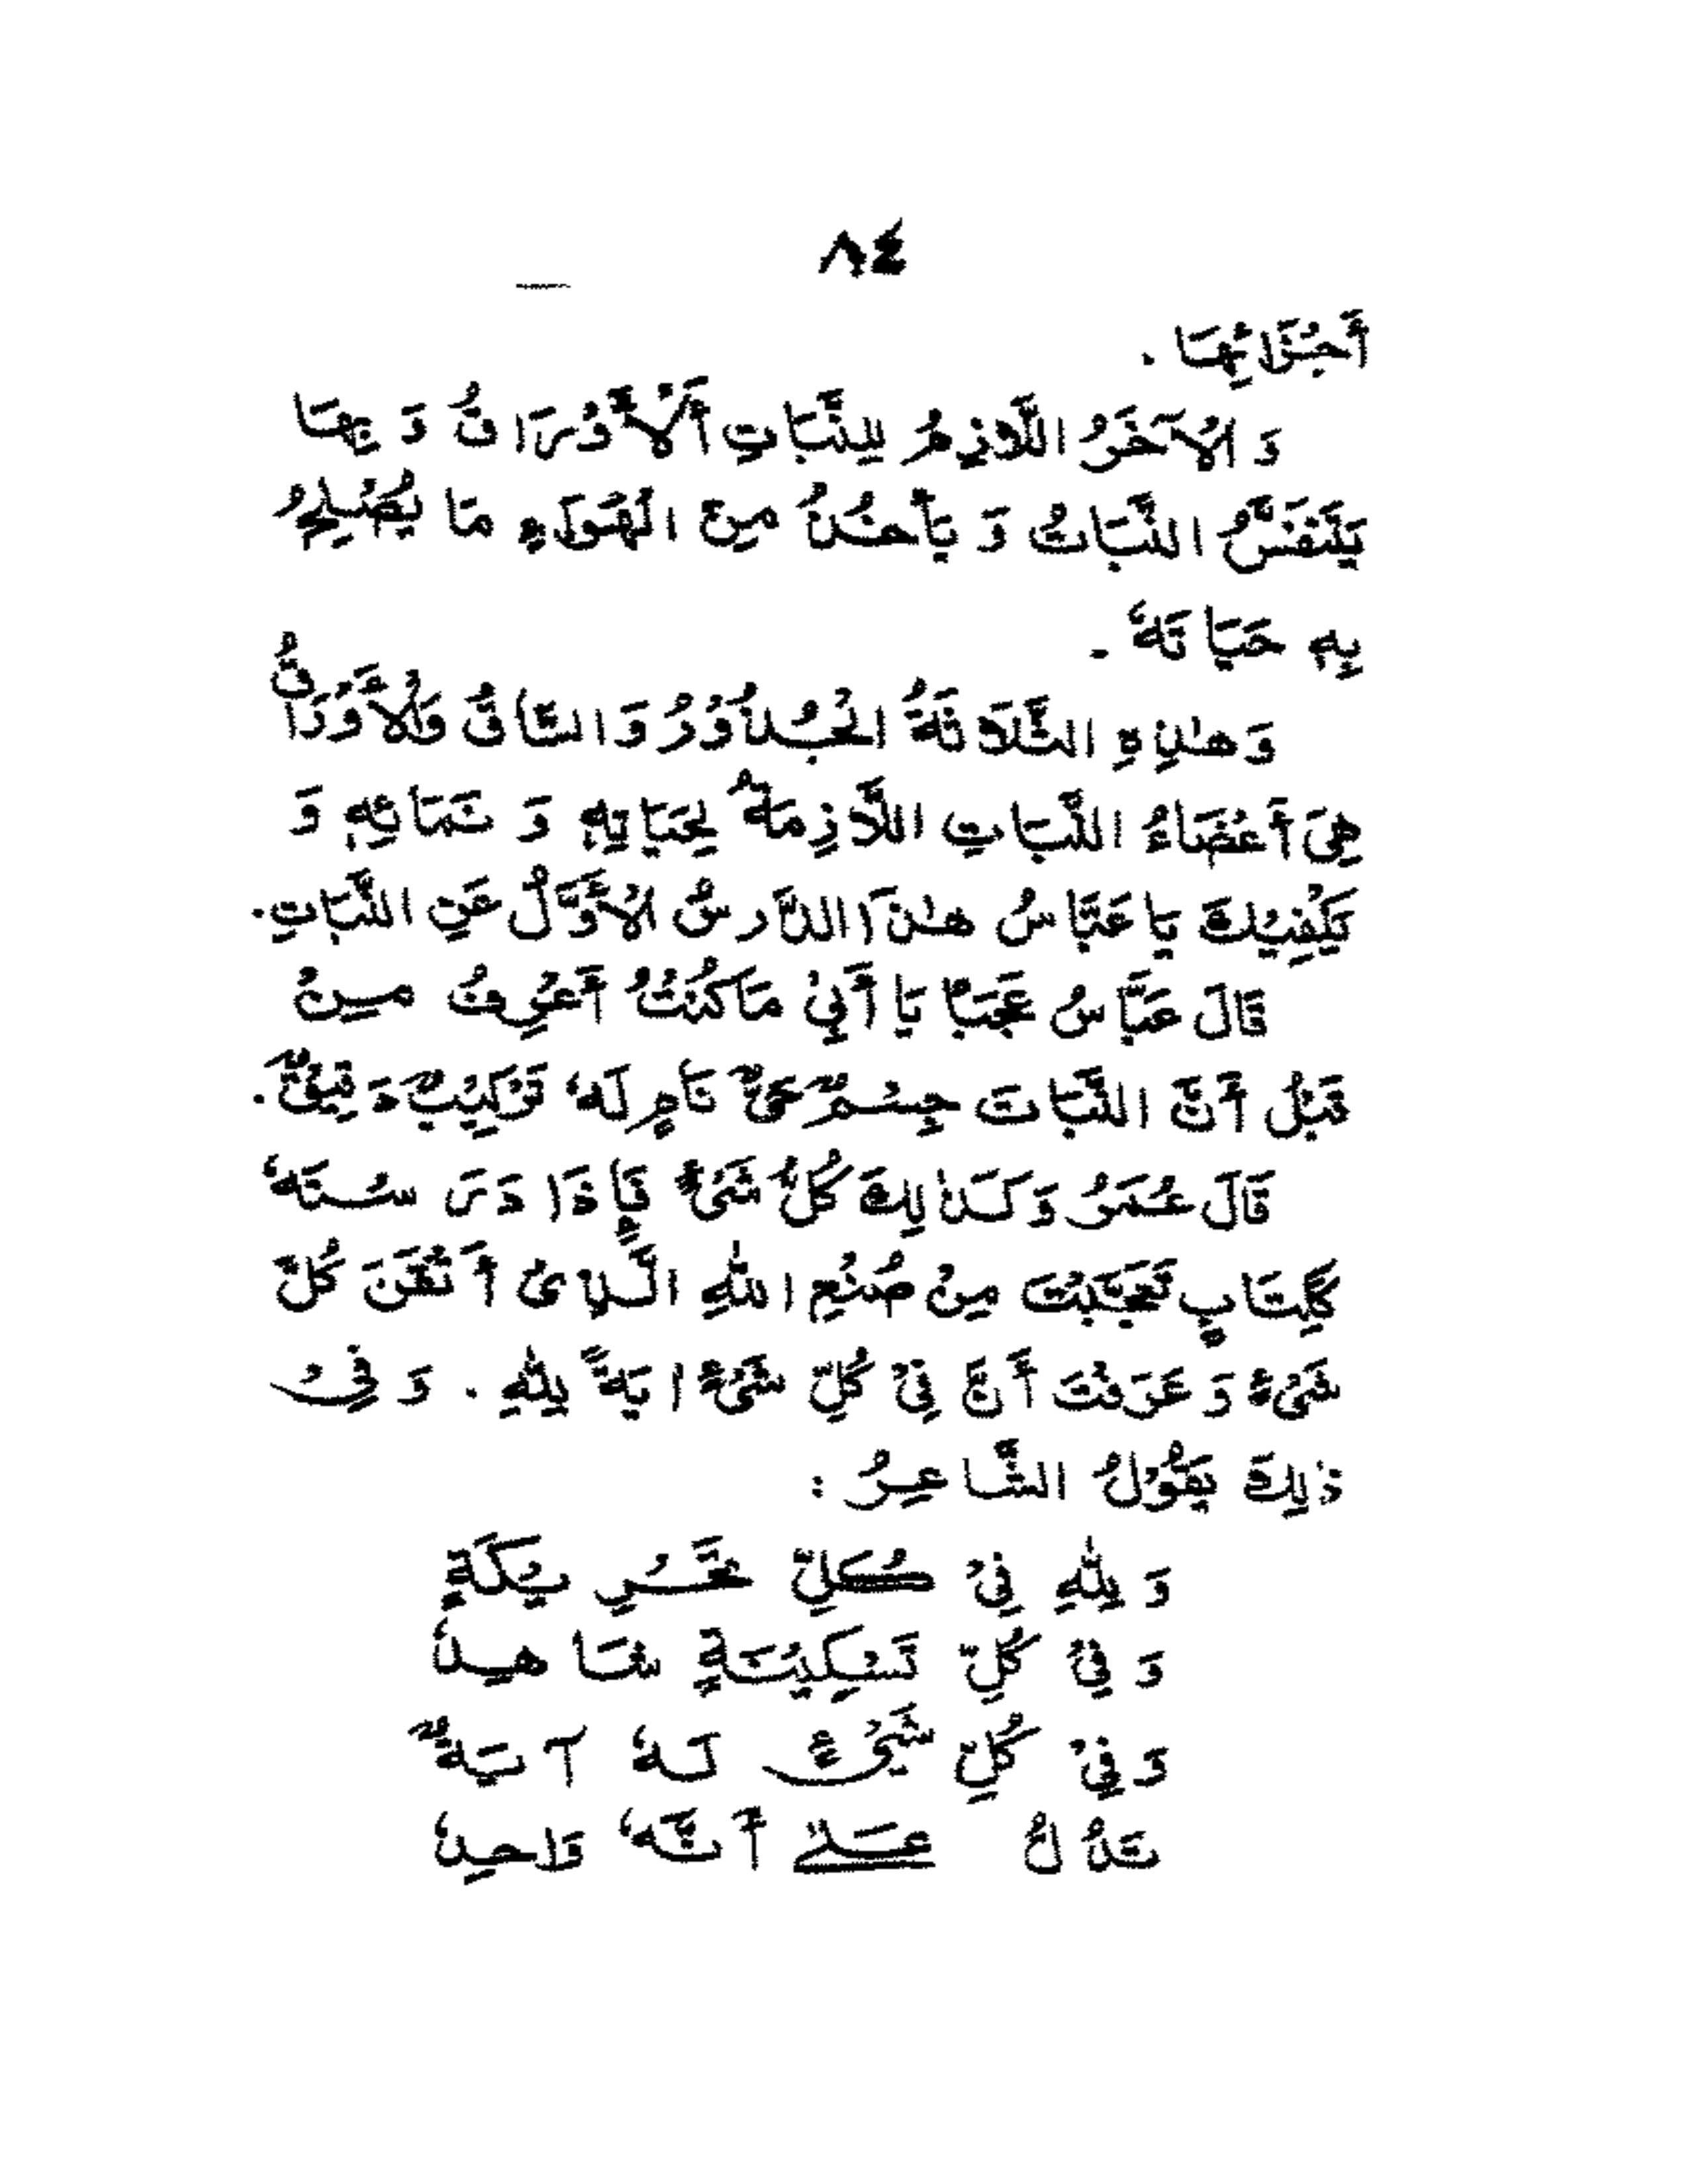 ٨٤
أَجْزَائِهَا .
وَ الْآخَرُ اللَّازِمُ لِلنَّبَاتِ أَلْأَوْرَاقُ وَ بِهَا
يَتَنَفَّسُ النَّبَاتُ وَ يَأْخُذُ مِنَ الْهَوَاءِ مَا يُصْلِحُ
بِهِ حَيَاتَهُ .
وَ هٰذِهِ الثَّلَاثَةُ الْجُذُوْرُ وَ السَّاقُ وَالْأَوْرَاقُ
هِيَ أَعْضَاءُ النَّبَاتِ اللَّازِمَةُ لِحَيَاتِهِ وَ نَمَائِهِ وَ
يَكْفِيْكَ يَا عَبَّاسُ هٰذَا الدَّرسُ الْأَوَّلُ عَنِ النَّبَاتِ.
قَالَ عَبَّاسُ عَجَبًا يَا أَبِيْ مَا كُنْتُ أَعْرِفُ مِنْ
قَبْلُ أَنَّ النَّبَاتَ جِسْمٌ حَيٌّ نَامٍ لَهُ تَرْكِيْبٌ دَقِيْقٌ.
قَالَ عُمَرُ وَ كَذٰلِكَ كُلُّ شَيْءٍ فَإِذَا دَرَسْتَهُ
كَكِتَابٍ تَعَجَّبْتَ مِنْ صُنْعِ اللهِ الَّذِيْ أَتْقَنَ كُلَّ
شَيْءٍ وَ عَرَفْتَ أَنَّ فِيْ كُلِّ شَيْءٍ ايَةً لِلّٰهِ . وَ فِيْ
ذٰلِكَ يَقُوْلُ الشَّاعِرُ :
وَ لِلّٰهِ فِيْ كُلِّ تَحْرِيْكَةٍ
وَ فِيْ كُلِّ تَسْكِيْنَةٍ شَاهِدٌ
وَ فِيْ كُلِّ شَيْءٍ لَهُ آيَةٌ
تَدُلُّ عَلٰى أَنَّهُ وَاحِدٌ